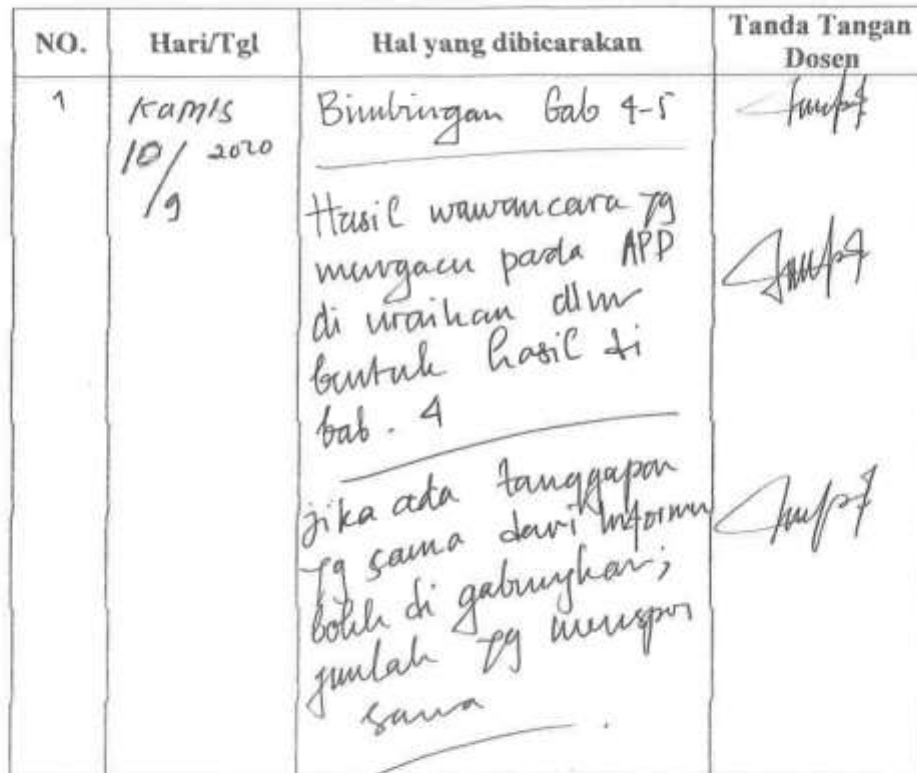 NO. Hari/Tgl Hal yang dibicarakan Tanda Tangan Dosen
1 Kamis 10/9 2020 Bimbingan bab 4-5
Hasil wawancara yg
mengacu pada APD
di uraikan dlm
bentuk hasil di
bab. 4
jika ada tanggapan
yg sama dari informan
boleh di gabungkan;
jumlah yg merespon
sama